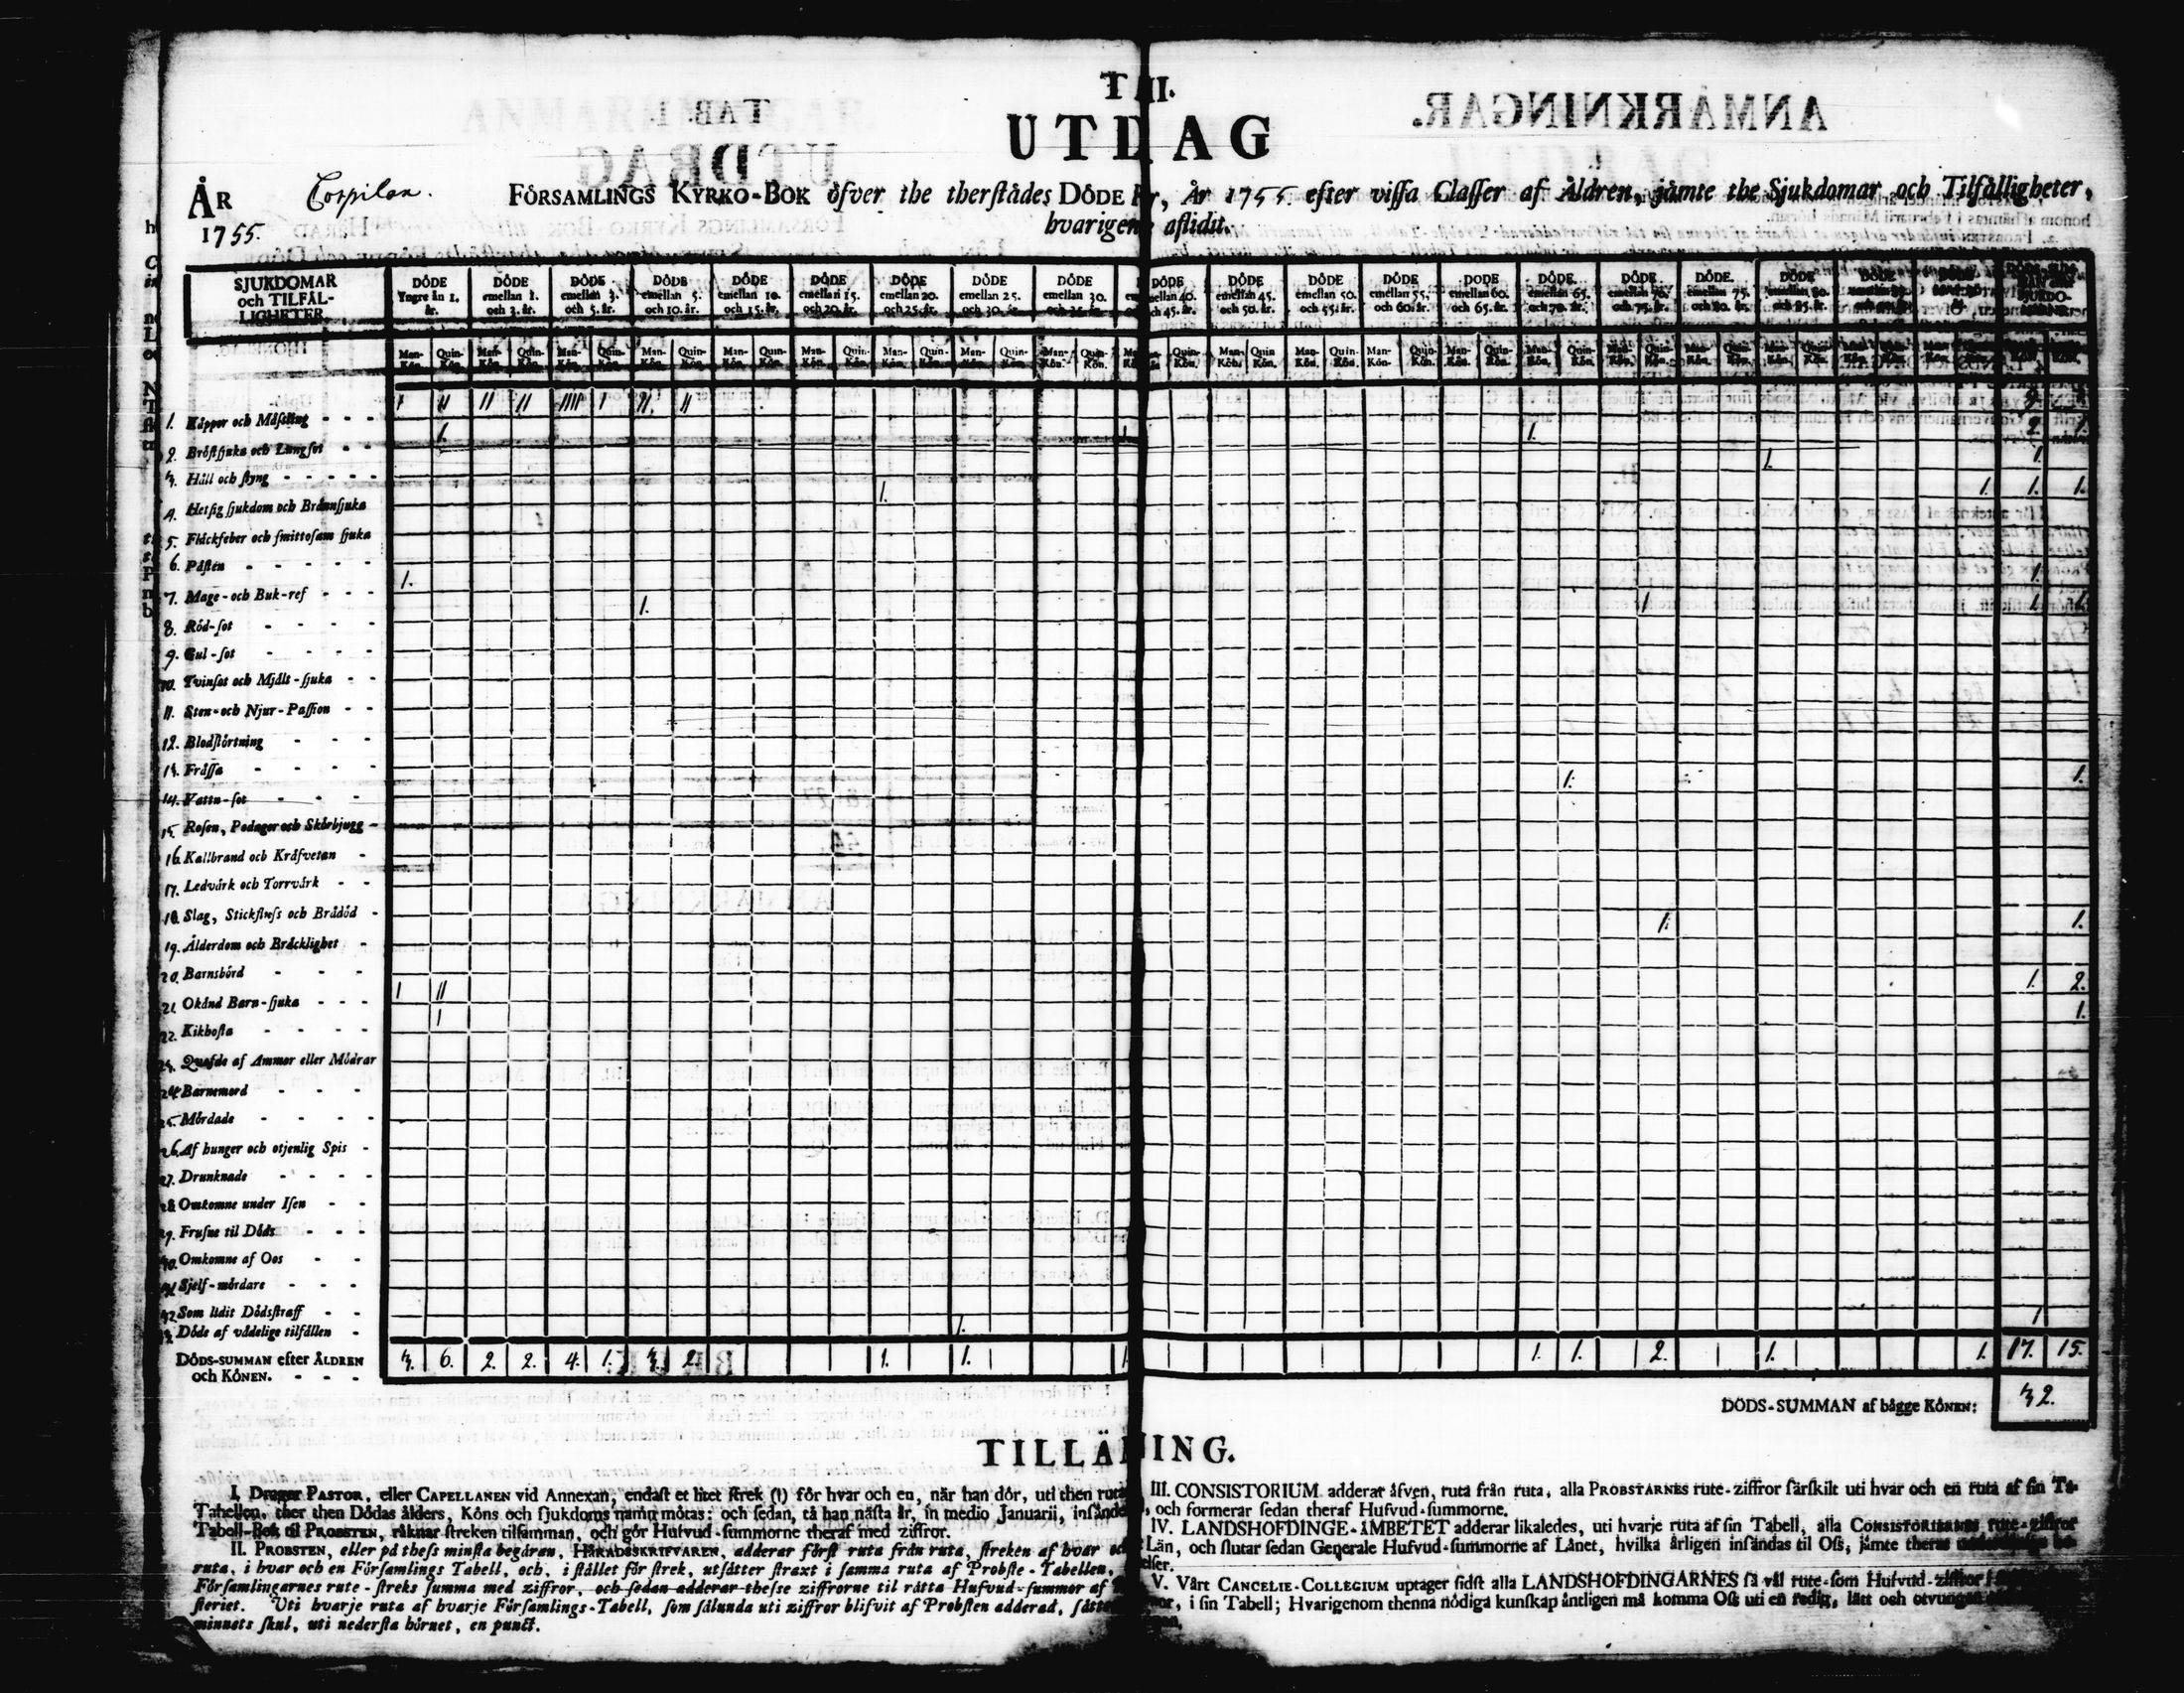 T II.
UTD AG
ÅR 1755. Corpilax. FÖRSAMLINGS KYRKO-BOK öfver the therstädes DÖDE År 1755. efter vissa Classer af Åldren, jämte the Sjukdomar och Tilfälligheter,
hvarigen aflidit.
SJUKDOMAR och TILFÄL-LIGHETER.
DÖDE Yngre än 1. år. DÖDE emellan 1. och 3. år. DÖDE emellan 3. och 5. år. DÖDE emellan 5. och 10. år. DÖDE emellan 10. och 15. år. DÖDE emellan 15. och 20. år. DÖDE emellan 20. och 25. år. DÖDE emellan 25. och 30. år. DÖDE emellan 30. DÖDE ellan 40. ch 45. år. DÖDE emellan 45. och 50. år. DÖDE emellan 50. och 55. år. DÖDE emellan 55. och 60. år. DÖDE emellan 60. och 65. år. DÖDE emellan 65. och 70. år. DÖDE emellan 70. och 75. år. DÖDE emellan 75. och 80. år. DÖDE emellan 80. och 85. år.
Man-Kön. Quin-Kön. Man-Kön. Quin-Kön. Man-Kön. Quin-Kön. Man-Kön. Quin-Kön. Man-Kön. Quin-Kön. Man-Kön. Quin-Kön. Man-Kön. Quin-Kön. Man-Kön. Quin-Kön. Man-Kön. Quin-Kön. Quin-Kön. Man-Kön. Quin-Kön. Man-Kön. Quin-Kön. Man-Kön. Quin-Kön. Man-Kön. Quin-Kön. Man-Kön. Quin-Kön. Man-Kön. Quin-Kön. Man-Kön. Quin-Kön. Man-Kön. Quin-Kön.
1. Koppor och Mässling - - - I II II II IIII I II. II
2. Bröstsjuka och Lungsot - - 1. 1. 1. 2.
3. Håll och styng - - - - - 1. 1.
4. Hetsig sjukdom och Brännsjuka 1. 1. 1. 1.
5. Fläckfeber och smittosam sjuka
6. Pästen - - - - -
7. Mage-och Buk-ref - - - 1. 1.
8. Röd-sot - - - - 1. 1 1. 1.
9. Gul-sot - - - -
10. Tvinsot och Mjält-sjuka - -
11. Sten-och Njur-Passion - -
12. Blodstörtning - - -
13. Frässa - - - -
14. Vattu-sot - - - 1. 1.
15. Rosen, Podager och Skörbjugg -
16. Kallbrand och Kräfvetan -
17. Ledvärk och Torrvärk - -
18. Slag, Stickfluss och Brådöd -
19. Ålderdom och Bräcklighet - 1. 1.
20. Barnsbörd - - -
21. Okänd Barn-sjuka - - - I II 1. 2.
22. Kikhosta - - - - I 1.
23. Quafde af Ammor eller Mödrar
24. Barnemord - - -
25. Mördade - - - -
26. Af hunger och otjenlig Spis -
27. Drunknade - - - -
28. Omkomne under Isen - -
29. Frusne til Döds - - -
30. Omkomne af Oos - - -
31. Sjelf-mördare - - -
32. Som lidit Dödsstraff - -
33. Döde af vådelige tilfällen - 1. 1
DÖDS-SUMMAN efter ÅLDREN och KÖNEN. - - - 3. 6. 2. 2. 4. 1. 3. 2. 1. 1. 1 1. 1. 2. 1. 1. 17. 15.
DÖDS-SUMMAN af bägge KÖNEN: 32.
TILLÄ ING.
I. Drager PASTOR, eller CAPELLANEN vid Annexan, endast et litet strek (I) för hvar och en, när han dör, uti then ruta
Tabellen, ther then Dödas ålders, Köns och sjukdoms namn mötas: och sedan, tå han nästa år, in medio Januarii, insände
Tabell-Bok til PROBSTEN, räknar streken tilsamman, och gör Hufvud-summorne theraf med ziffror.
II. PROBSTEN, eller på thess minsta begäran, HÄRADSSKRIFVAREN, adderar först ruta från ruta, streken af hvar och
ruta, i hvar och en Församlings Tabell, och, i stället för strek, utsätter straxt i samma ruta af Probste-Tabellen,
Församlingarnes rute-streks summa med ziffror, och sedan adderar thesse ziffrorne til rätta Hufvud-summor af
steriet. Uti hvarje ruta af hvarje Församlings-Tabell, som sålunda uti ziffror blifvit af Probsten adderad, sätte
minnets skul, uti nedersta hörnet, en punct.
III. CONSISTORIUM adderar äfven, ruta från ruta, alla PROBSTARNES rute-ziffror särskilt uti hvar och en ruta af sin Ta-
, och formerar sedan theraf Hufvud-summorne.
IV. LANDSHÖFDINGE-ÄMBETET adderar likaledes, uti hvarje ruta af sin Tabell, alla CONSISTORIERNES rute-ziffror
Län, och slutar sedan Generale Hufvud-summorne af Länet, hvilka årligen insändas til Oss, jämte theras
elser.
V. Vårt CANCELIE-COLLEGIUM uptager sidst alla LANDSHÖFDINGARNES så väl rute-som Hufvud-ziffror
, i sin Tabell; Hvarigenom thenna nödiga kunskap äntligen må komma Oss uti en redig, lätt och otvungen